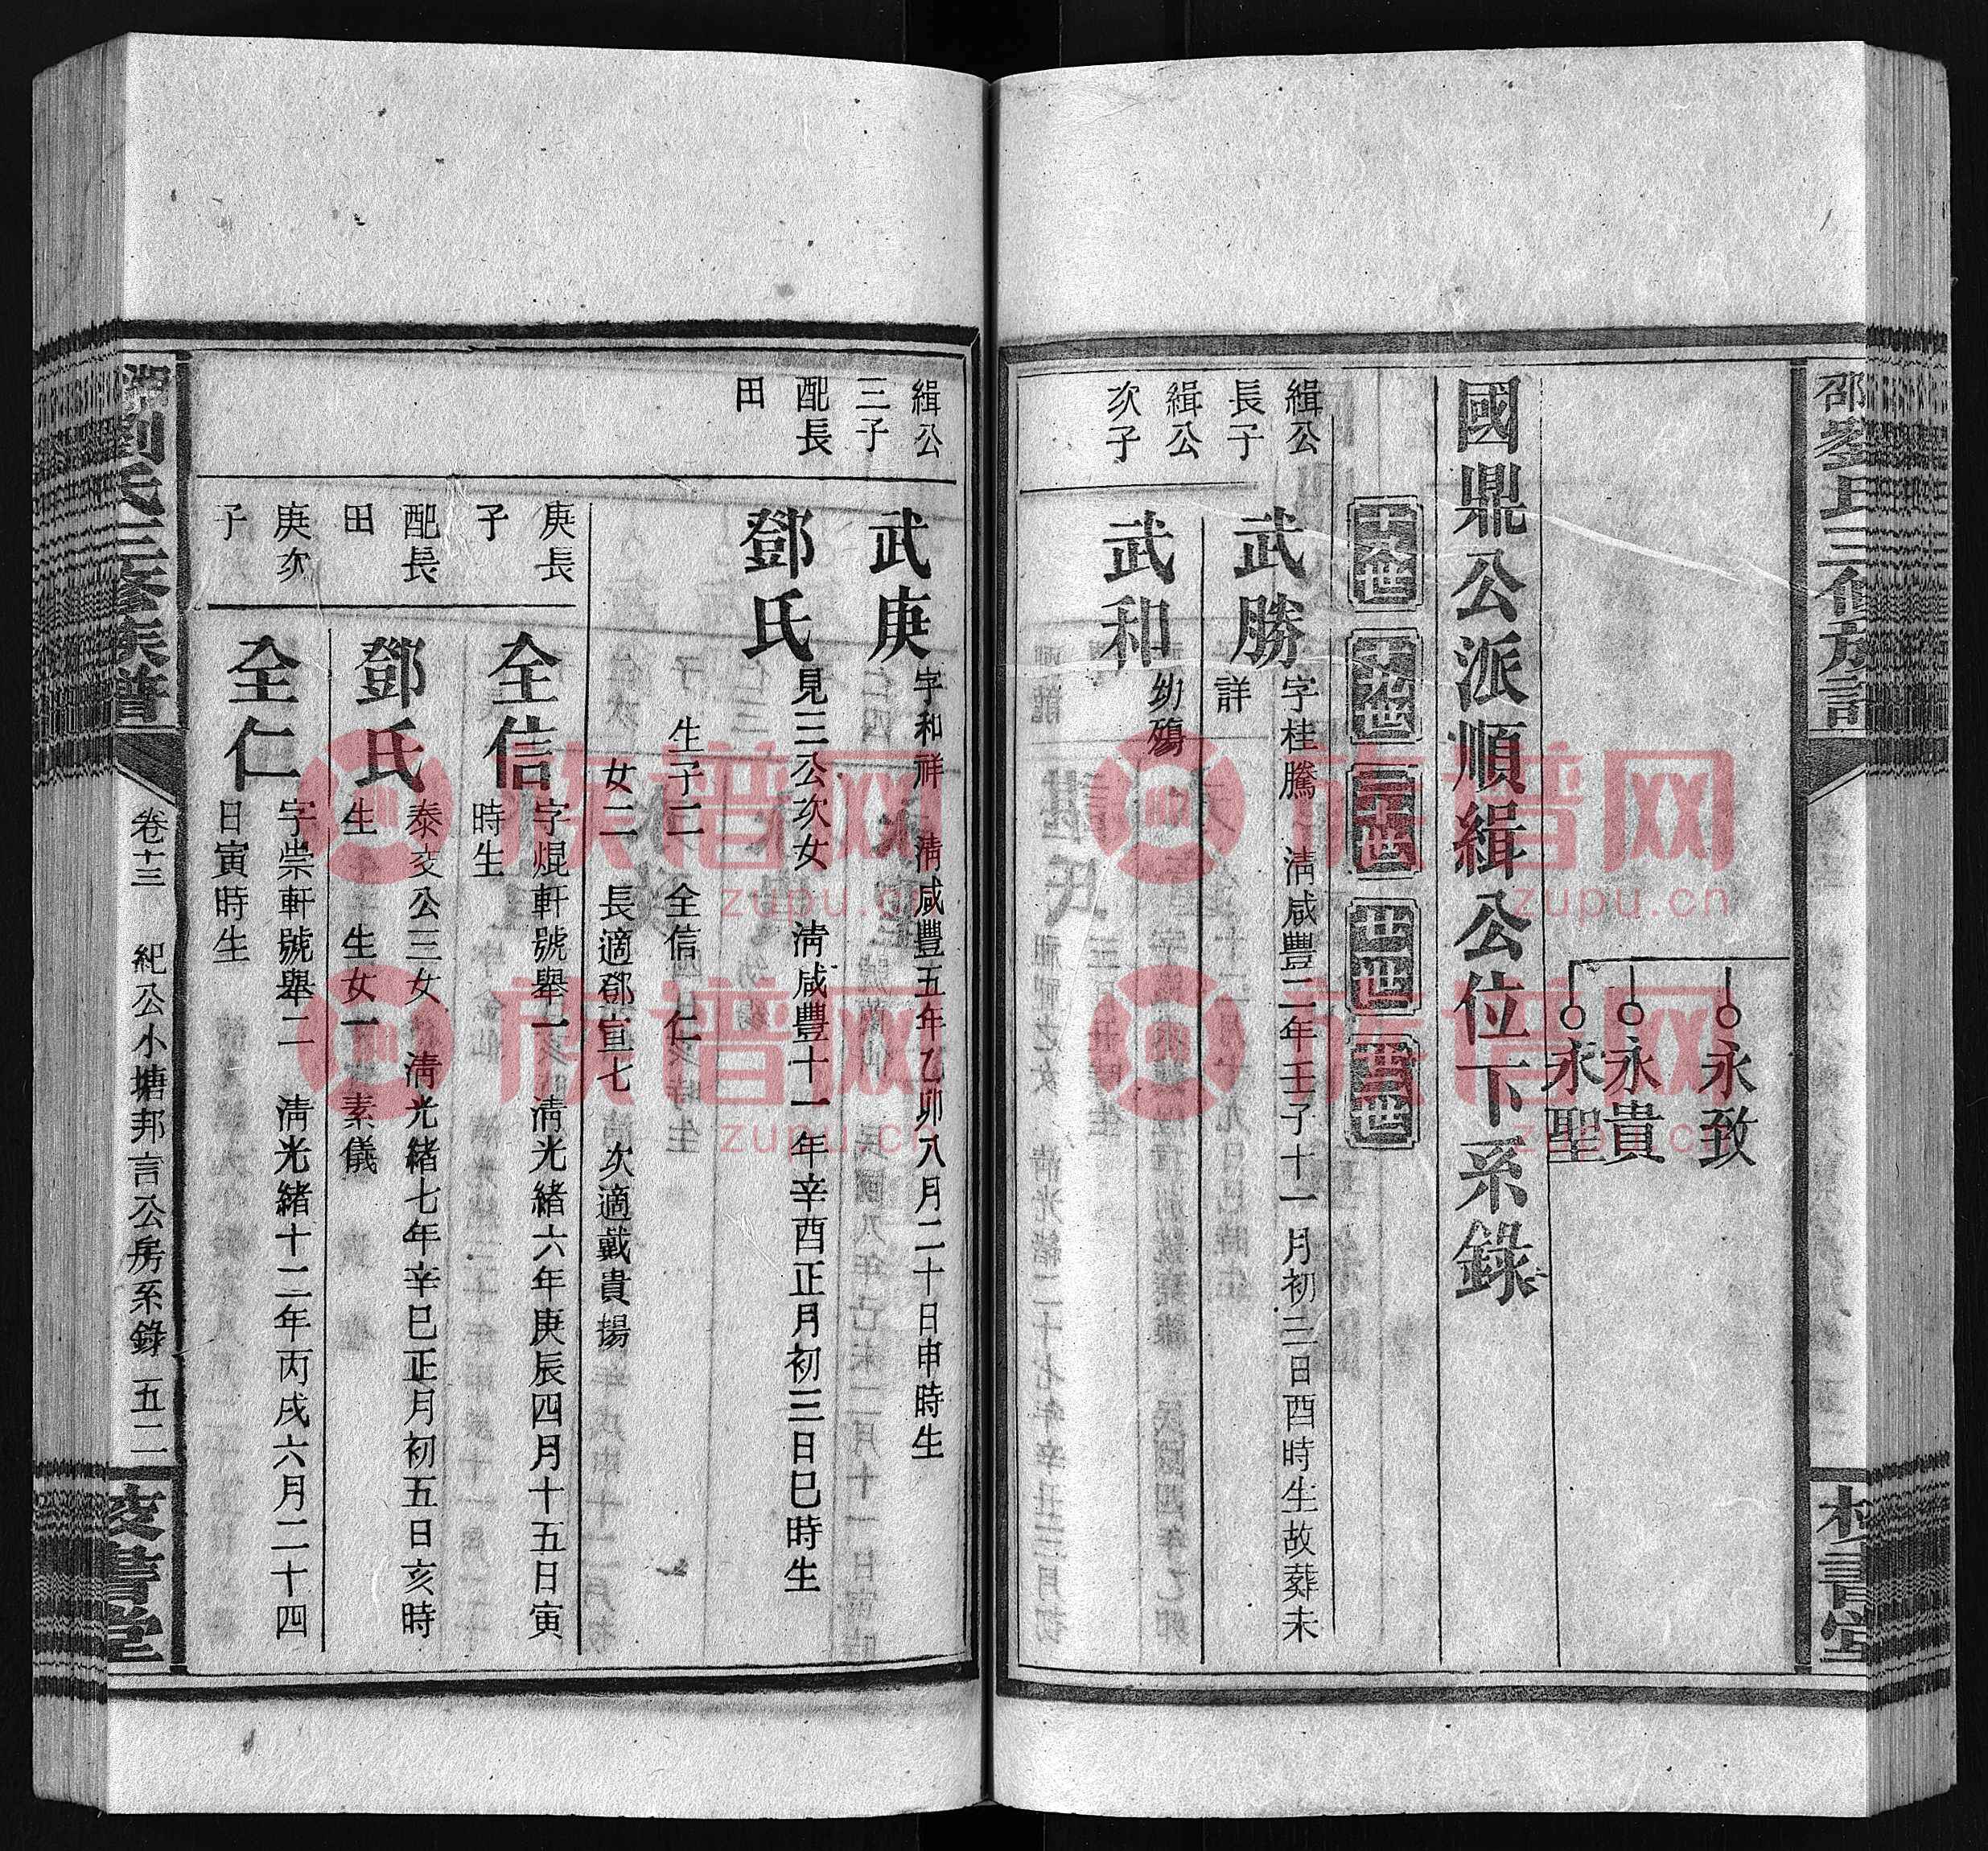 永致
永貴
永聖
國鼎公派順緝公位下系錄
緝公長子
武勝
字桂騰 淸咸豐二年壬子十一月初三日酉時生故葬未詳
緝公次子
武和
幼殤
緝公三子
武庚
字和祥 淸咸豐五年乙卯八月二十日申時生
配長田
鄧氏
見三公次女 淸咸豐十一年辛酉正月初三日巳時生
生子二 全信 仁
女二 長適鄧宣七 次適戴貴揚
庚長子
全信
字焜軒號舉一 淸光緒六年庚辰四月十五日寅時生
配長田
鄧氏
泰交公三女 淸光緒七年辛巳正月初五日亥時生
生女一 素儀
庚次子
全仁
字崇軒號舉二 淸光緒十二年丙戌六月二十四日寅時生
劉氏三修族譜
卷十三
紀公小塘邦言公房系錄
五二
校書堂
族谱网
zupu.cn
族谱网
zupu.cn
族谱网
zupu.cn
族谱网
zupu.cn